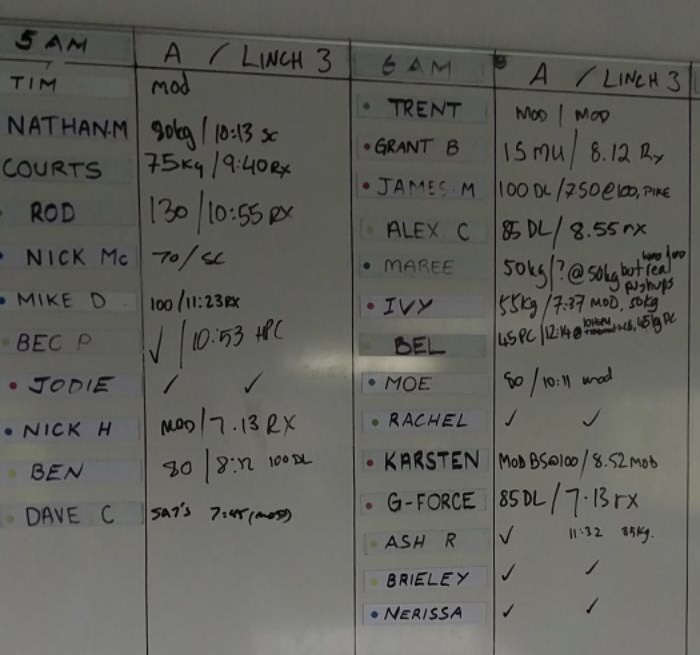 5 AM A / LINCH 3
TIM mod
NATHAN.M 90kg / 10:13 SC
COURTS 75Kg / 9:40 RX
ROD 130 / 10:55 RX
NICK Mc 70 / SC
MIKE D 100 / 11:23 RX
BEC P ✓ / 10:53 HPC
JODIE ✓ ✓
NICK H MOD / 7.13 RX
BEN 80 / 8:12 100 DL
DAVE C 7:45 (mod)
6 AM A / LINCH 3
TRENT MOD / MOD
GRANT B 15 MU / 8.12 Rx
JAMES M 100 DL / 750@100, PIKE
ALEX C 85 DL / 8.55 rx
MAREE 50kg / ? @ 50kg but real
pushups
IVY 55kg / 7:37 MOD, 50kg
BEL 45PC / 12:14 @ 45kg PC
MOE 80 / 10:11 mod
RACHEL ✓ ✓
KARSTEN MOD BS@100 / 8.52 MOD
G-FORCE 85 DL / 7.13 rx
ASH R ✓ 11:32 85Kg.
BRIELEY ✓ ✓
NERISSA ✓ ✓